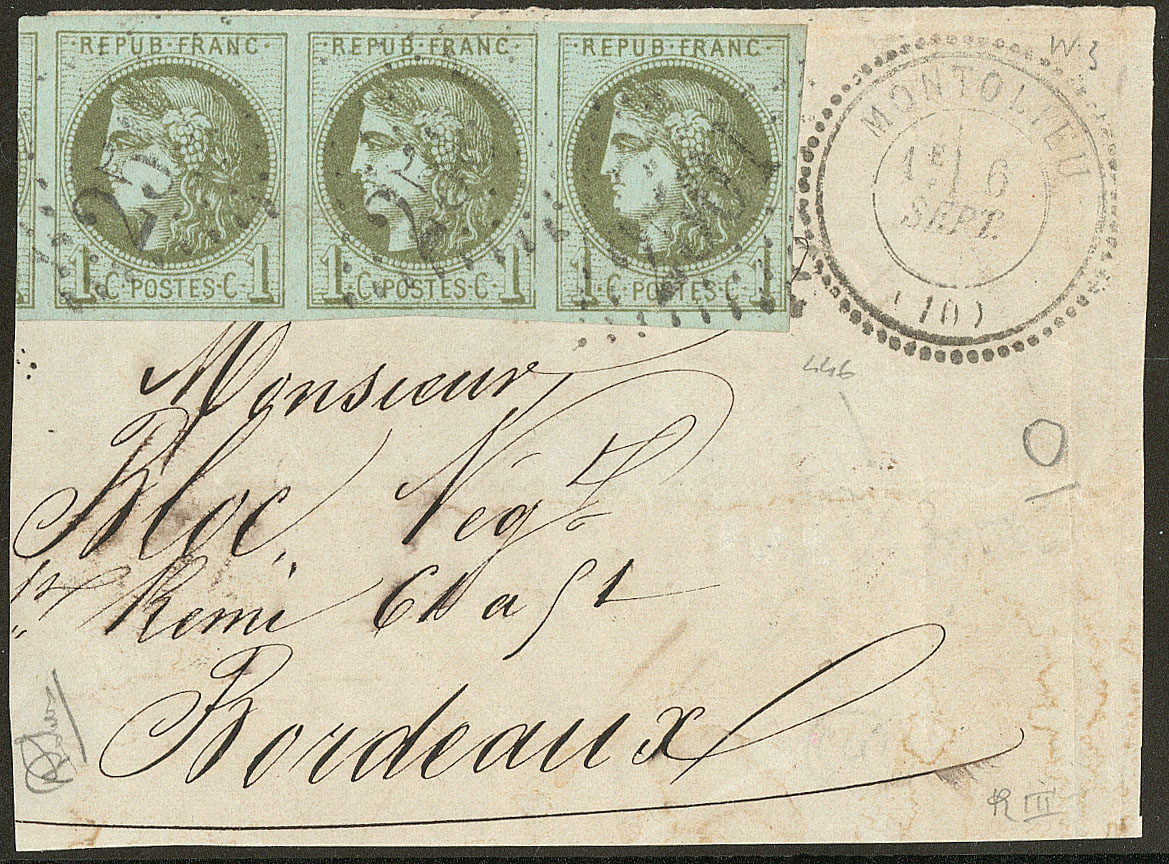 REPUB·FRANC·
REPUB·FRANC·
REPUB·FRANC·
1 C·POSTES·C· 1
1 C·POSTES·C· 1
1 C·POSTES·C· 1
25
2
MONTOLIEU
1E 6
SEPT.
(10)
W3
446
Monsieur
Bloc, Négt
St Remi
Bordeaux
R III